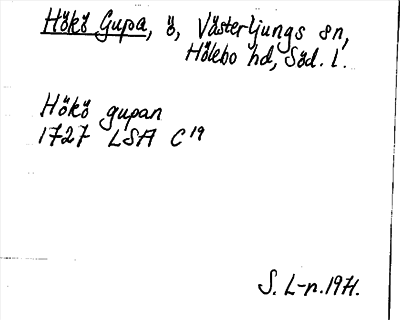 Hökö Gupa, ö, Västerljungs sn,
Hölebo hd, Söd. l.
Hökö gupan
1727 LSA C19
S. L-n. 1971.